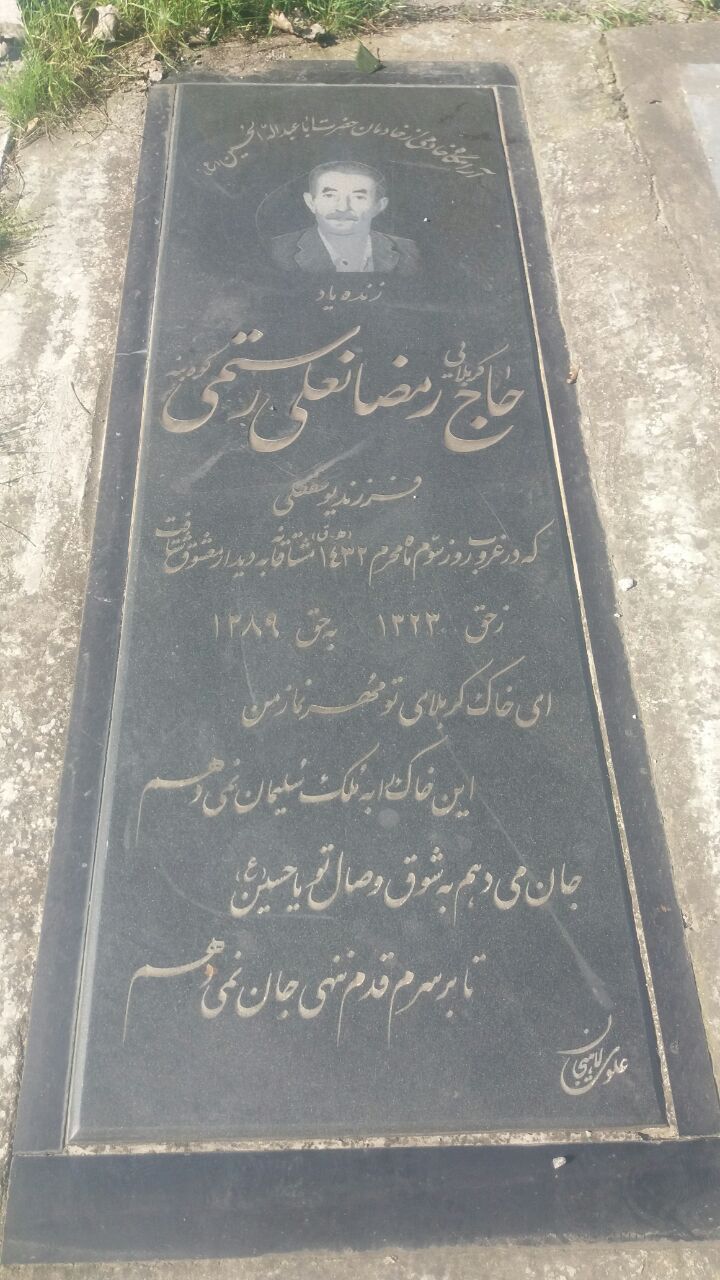 آرامگاه خادمی از خادمان حضرت اباعبدالله الحسین (ع)
زنده یاد
حاج کربلایی رمضانعلی رستمی کودهینه
فرزند یوسفعلی
که در غروب روز سوّم ماه محرم ۱۴۳۲ (ه.ق) مشتاقانه به دیدار معشوق شتافت
ز حق ۱۳۲۳ به حق ۱۳۸۹
ای خاک کربلای تو مُهر نماز من
این خاک را به مُلک سُلیمان نمی دهم
جان می دهم به شوق وصال تو یا حسین (ع)
تا بر سرم قدم ننهی جان نمی دهم
علوی لاهیجان